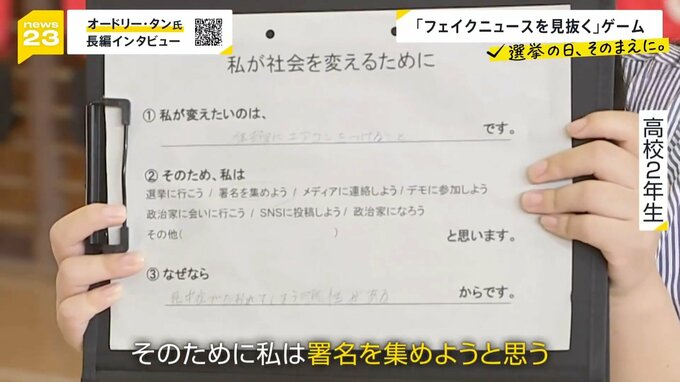 news 23
オードリー・タン氏
長編インタビュー
「フェイクニュースを見抜く」ゲーム
選挙の日、そのまえに。
高校2年生
私が社会を変えるために
① 私が変えたいのは、
体育館にエアコンをつけること です。
② そのため、私は
選挙に行こう / 署名を集めよう / メディアに連絡しよう / デモに参加しよう
政治家に会いに行こう / SNSに投稿しよう / 政治家になろう
その他( ) と思います。
③ なぜなら
てしまう可能性がある からです。
そのために私は署名を集めようと思う